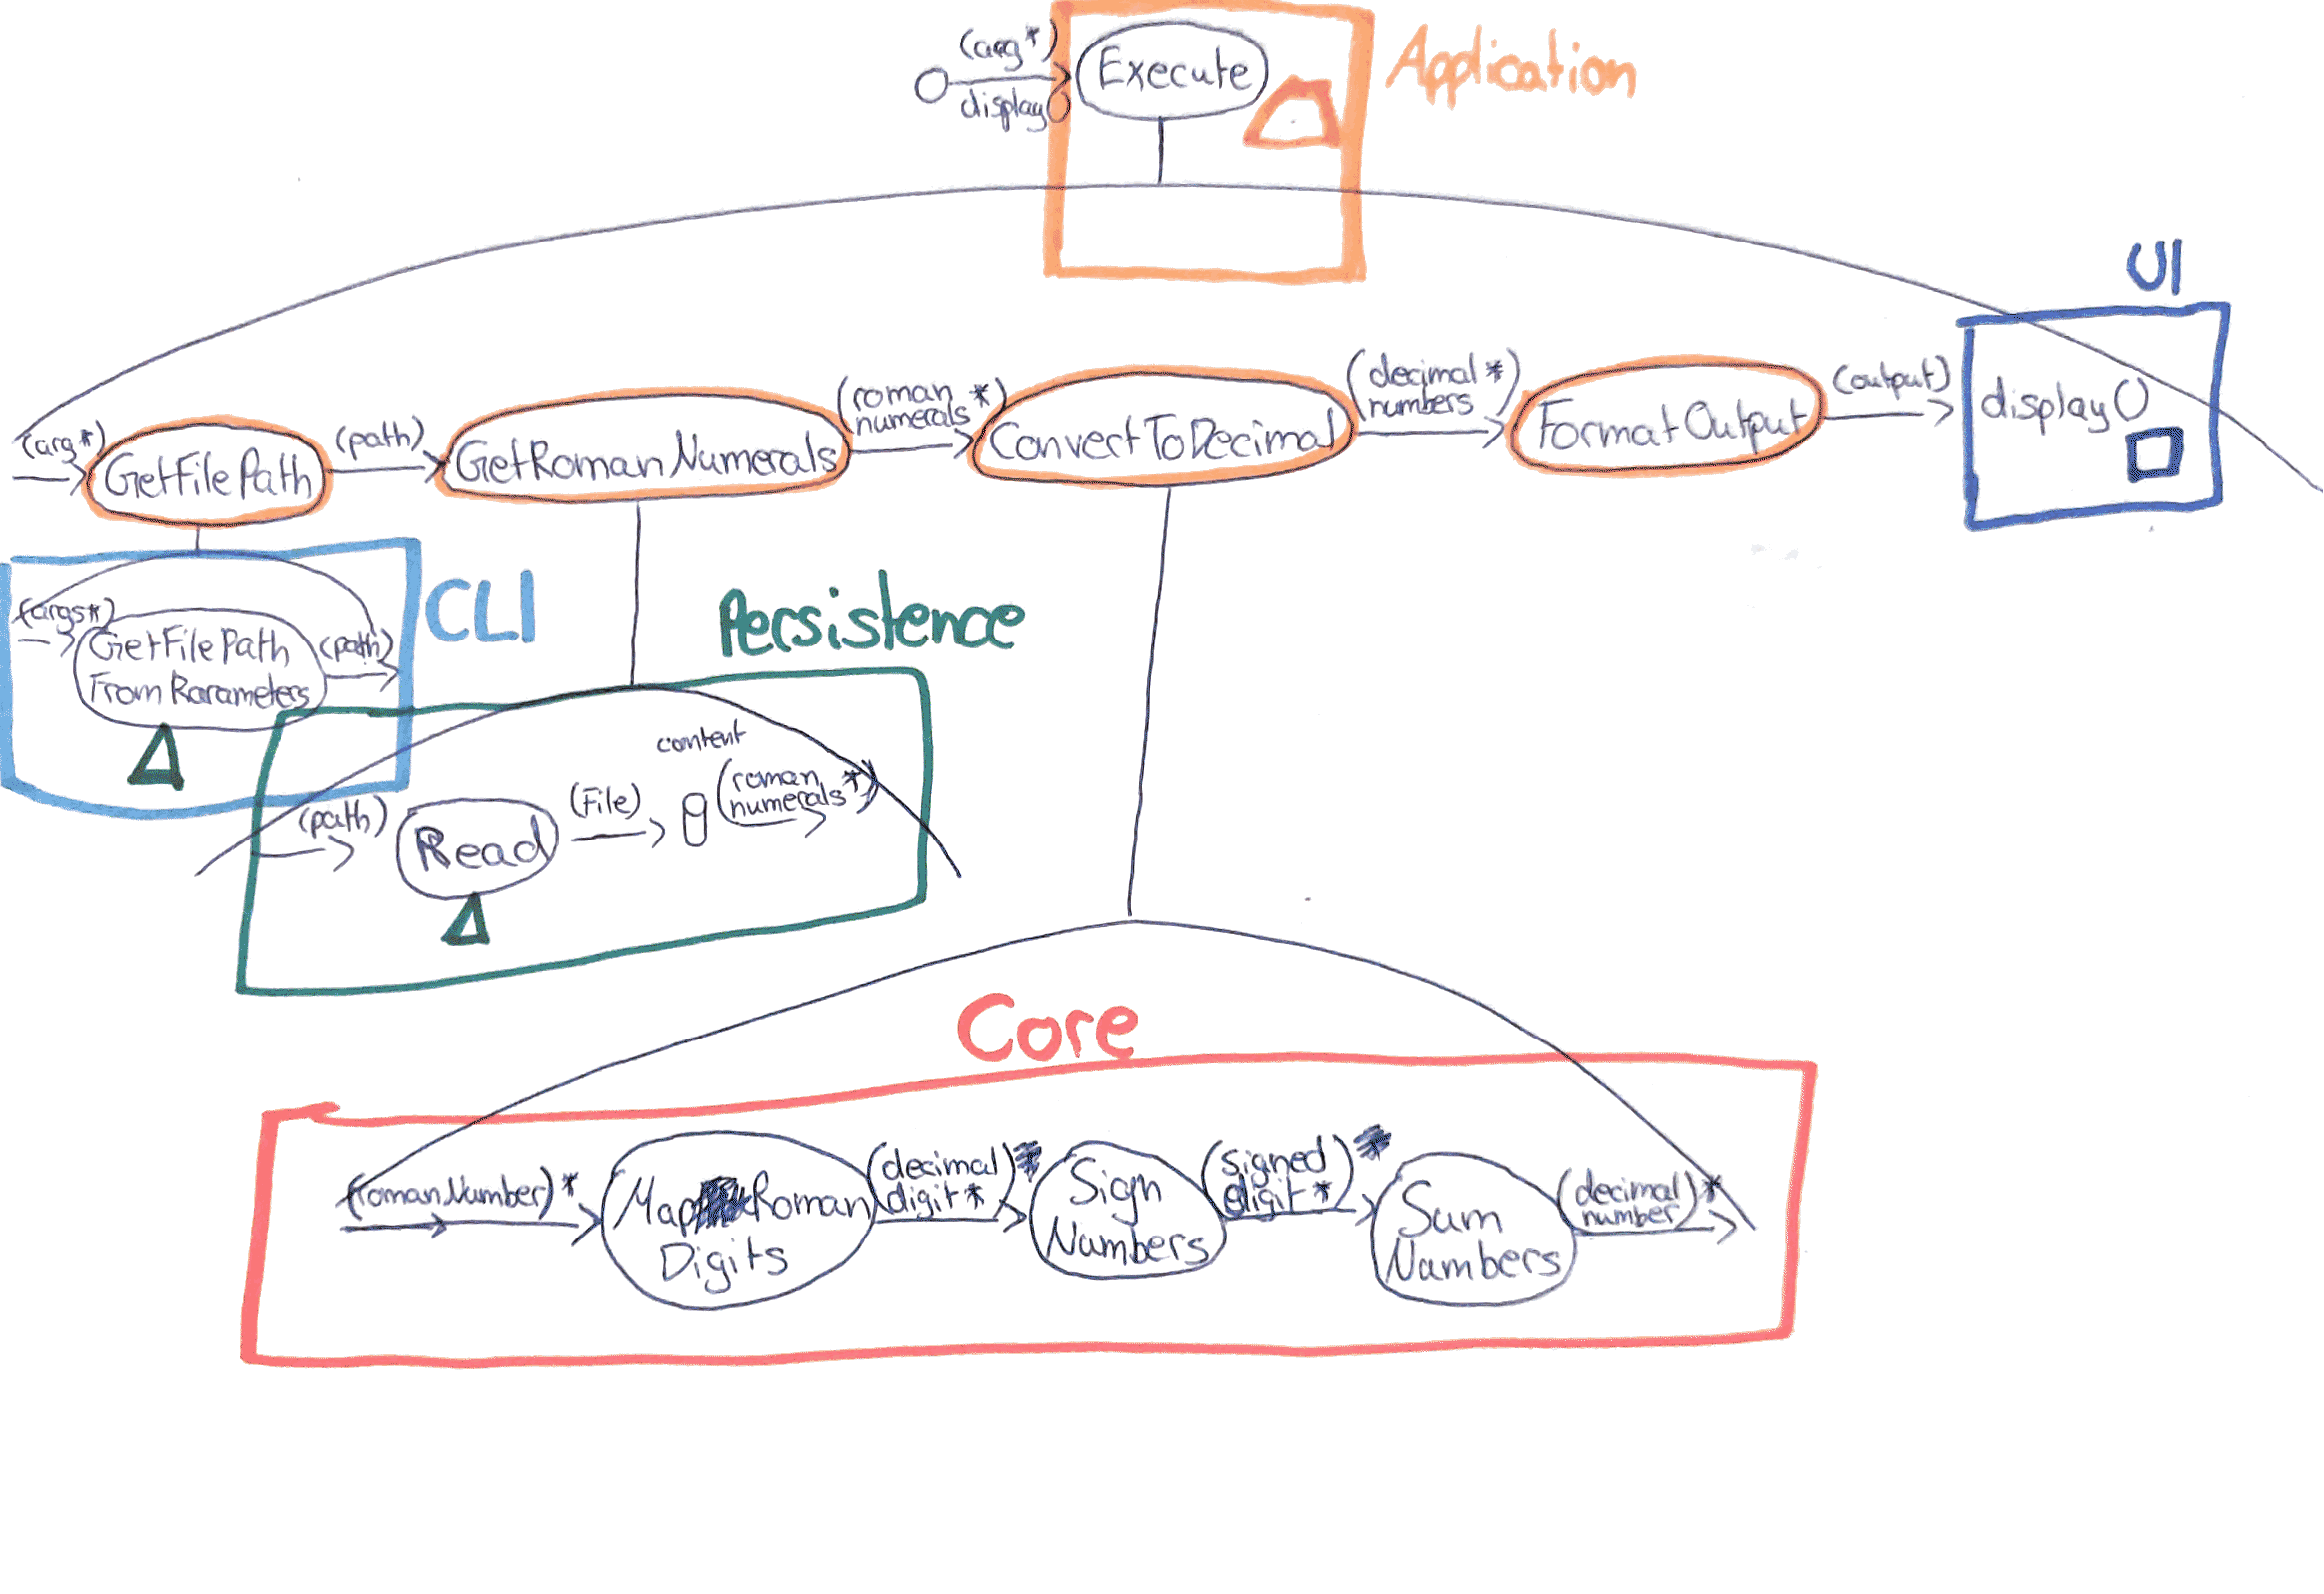 (arg*)
Execute
Application
display()
UI
(arg*)
GetFilePath
(path)
GetRomanNumerals
(roman
numerals*)
ConvertToDecimal
(decimal*
numbers)
FormatOutput
(output)
display()
CLI
(args*)
GetFilePath
From Parameters
(path)
Persistence
content
(path)
Read
(File)
(roman
numerals*)
Core
(romanNumber)*
Map Roman
Digits
(decimal
digit*)
Sign
Numbers
(signed
digit*)
Sum
Numbers
(decimal
number)*